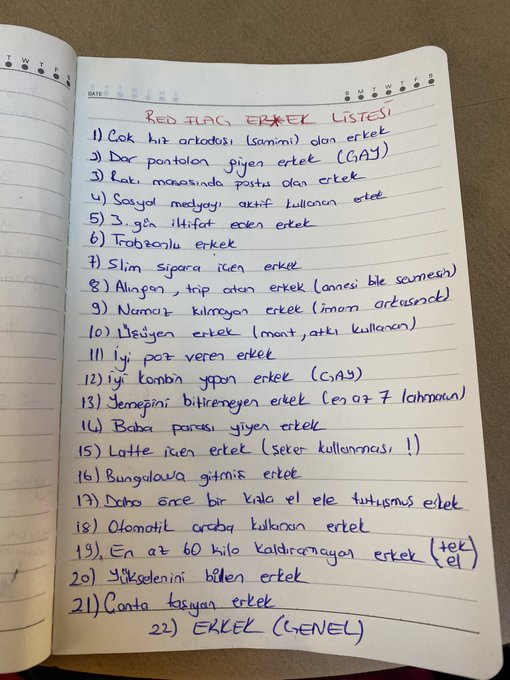 T W T F S
DATE
S M T W T F S
RED FLAG ERKEK LİSTESİ
1) Çok kız arkadaşı (samimi) olan erkek
2) Dar pantolon giyen erkek (GAY)
3) Rakı masasında postu olan erkek
4) Sosyal medyayı aktif kullanan erkek
5) 3. gün iltifat eden erkek
6) Trabzonlu erkek
7) Slim sigara içen erkek
8) Alıngan, trip atan erkek (annesi bile sevmesin)
9) Namaz kılmayan erkek (imam arkasında)
10) Üşüyen erkek (mont, atkı kullanan)
11) İyi poz veren erkek
12) İyi kombin yapan erkek (GAY)
13) Yemeğini bitiremeyen erkek (en az 7 lahmacun)
14) Baba parası yiyen erkek
15) Latte içen erkek (şeker kullanması !)
16) Bungalowa gitmiş erkek
17) Daha önce bir kızla el ele tutuşmuş erkek
18) Otomatik araba kullanan erkek
19) En az 60 kilo kaldıramayan erkek (tek el)
20) Yükselenini bilen erkek
21) Çanta taşıyan erkek
22) ERKEK (GENEL)